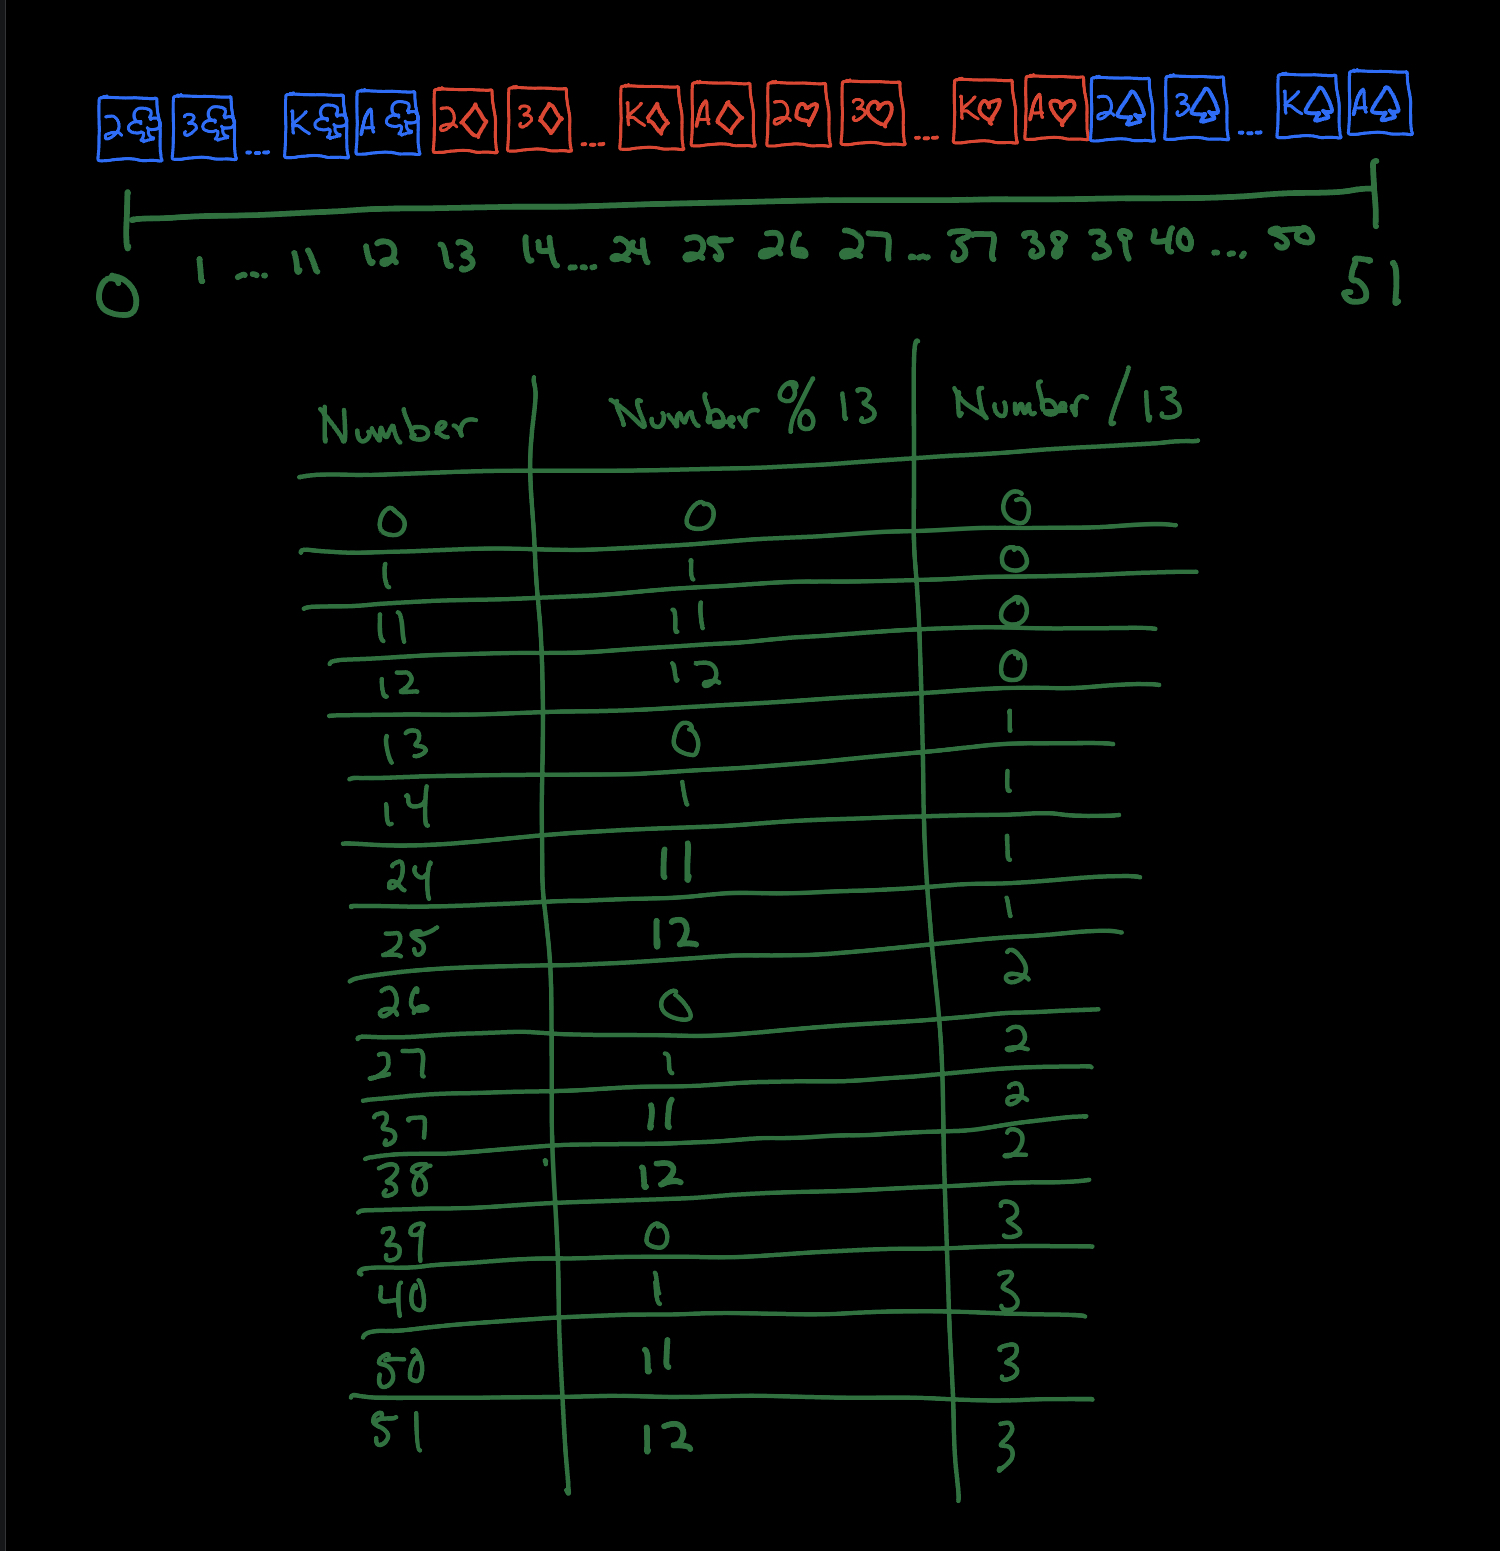 2♣ 3♣ ... K♣ A♣ 2♦ 3♦ ... K♦ A♦ 2♥ 3♥ ... K♥ A♥ 2♠ 3♠ ... K♠ A♠
0 1 ... 11 12 13 14 ... 24 25 26 27 ... 37 38 39 40 ... 50 51
Number Number % 13 Number / 13
0 0 0
1 1 0
11 11 0
12 12 0
13 0 1
14 1 1
24 11 1
25 12 1
26 0 2
27 1 2
37 11 2
38 12 2
39 0 3
40 1 3
50 11 3
51 12 3